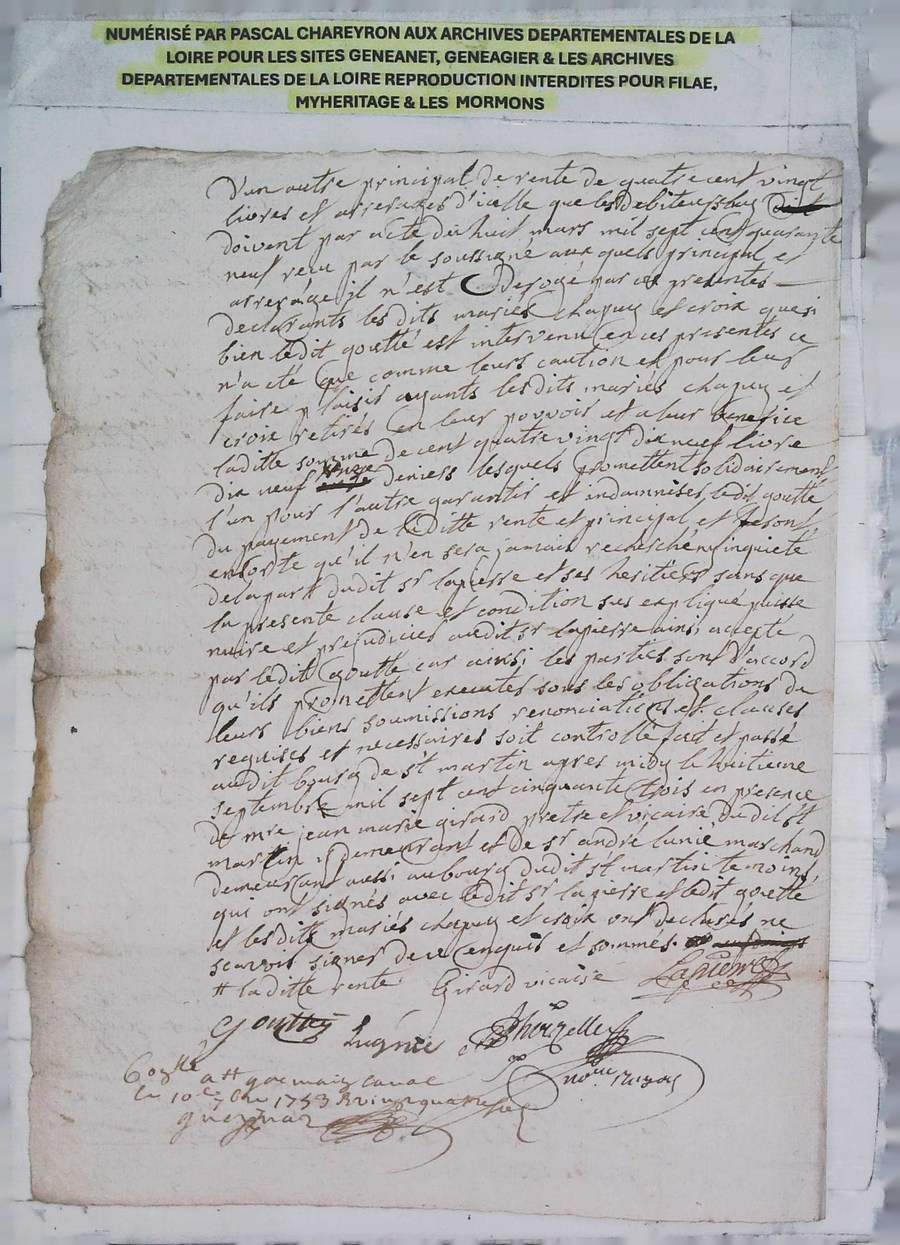 NUMÉRISÉ PAR PASCAL CHAREYRON AUX ARCHIVES DEPARTEMENTALES DE LA
LOIRE POUR LES SITES GENEANET, GENEAGIER & LES ARCHIVES
DEPARTEMENTALES DE LA LOIRE REPRODUCTION INTERDITES POUR FILAE,
MYHERITAGE & LES MORMONS
D'un autre principal de rente de quatre cent vingt
livres et arrerages d'icelle que les debiteurs
doivent par acte du huit mars mil sept cent quarante
neuf reçu par le soussigné aux quels principal et
arrerage il n'est Derogé par ces presentes
declarants les dits mariés chapuy et croix que si
bien ledit goutté est intervenu en ces presentes ce
n'a été que comme leurs caution et pour leur
faire plaisir ayants lesdits mariés chapuy et
croix retirés en leur pouvoir et a leur benefice
laditte somme de cent quatre vingt dix neuf livre
dix neuf deniers lesquels promettent solidairement
l'un pour l'autre garantir et indamniser ledit goutté
du payement de laditte rente et principal et
ensorte qu'il n'en sera jamais recherché ny inquieté
de la part dudit sr lapierre et ses heritiers sans que
la presente clause et condition sus expliqué puisse
nuire et prejudicier audit sr lapierre ainsi accepté
par ledit goutté car ainsi les parties sont d'accord
qu'ils promettent executer sous les obligations de
leurs biens soumissions renonciations et clauses
requises et necessaires soit controllé fait et passé
audit bourg de st martin apres midy le huitieme
septembre mil sept cent cinquante trois en presence
de mre jean marie girard pretre et vicaire dudit st
martin y demeurant et de sr andré lunié marchand
demeurant aussi au bourg dudit st martin temoins
qui ont signés avec ledit sr lapierre et ledit goutté
et lesdits mariés chapuy et croix ont declarés ne
scavoir signer de ce enquis et sommés
# laditte rente Girard vicaire Lapierre
Goutte
no.re royal
le 10e 7bre 1753